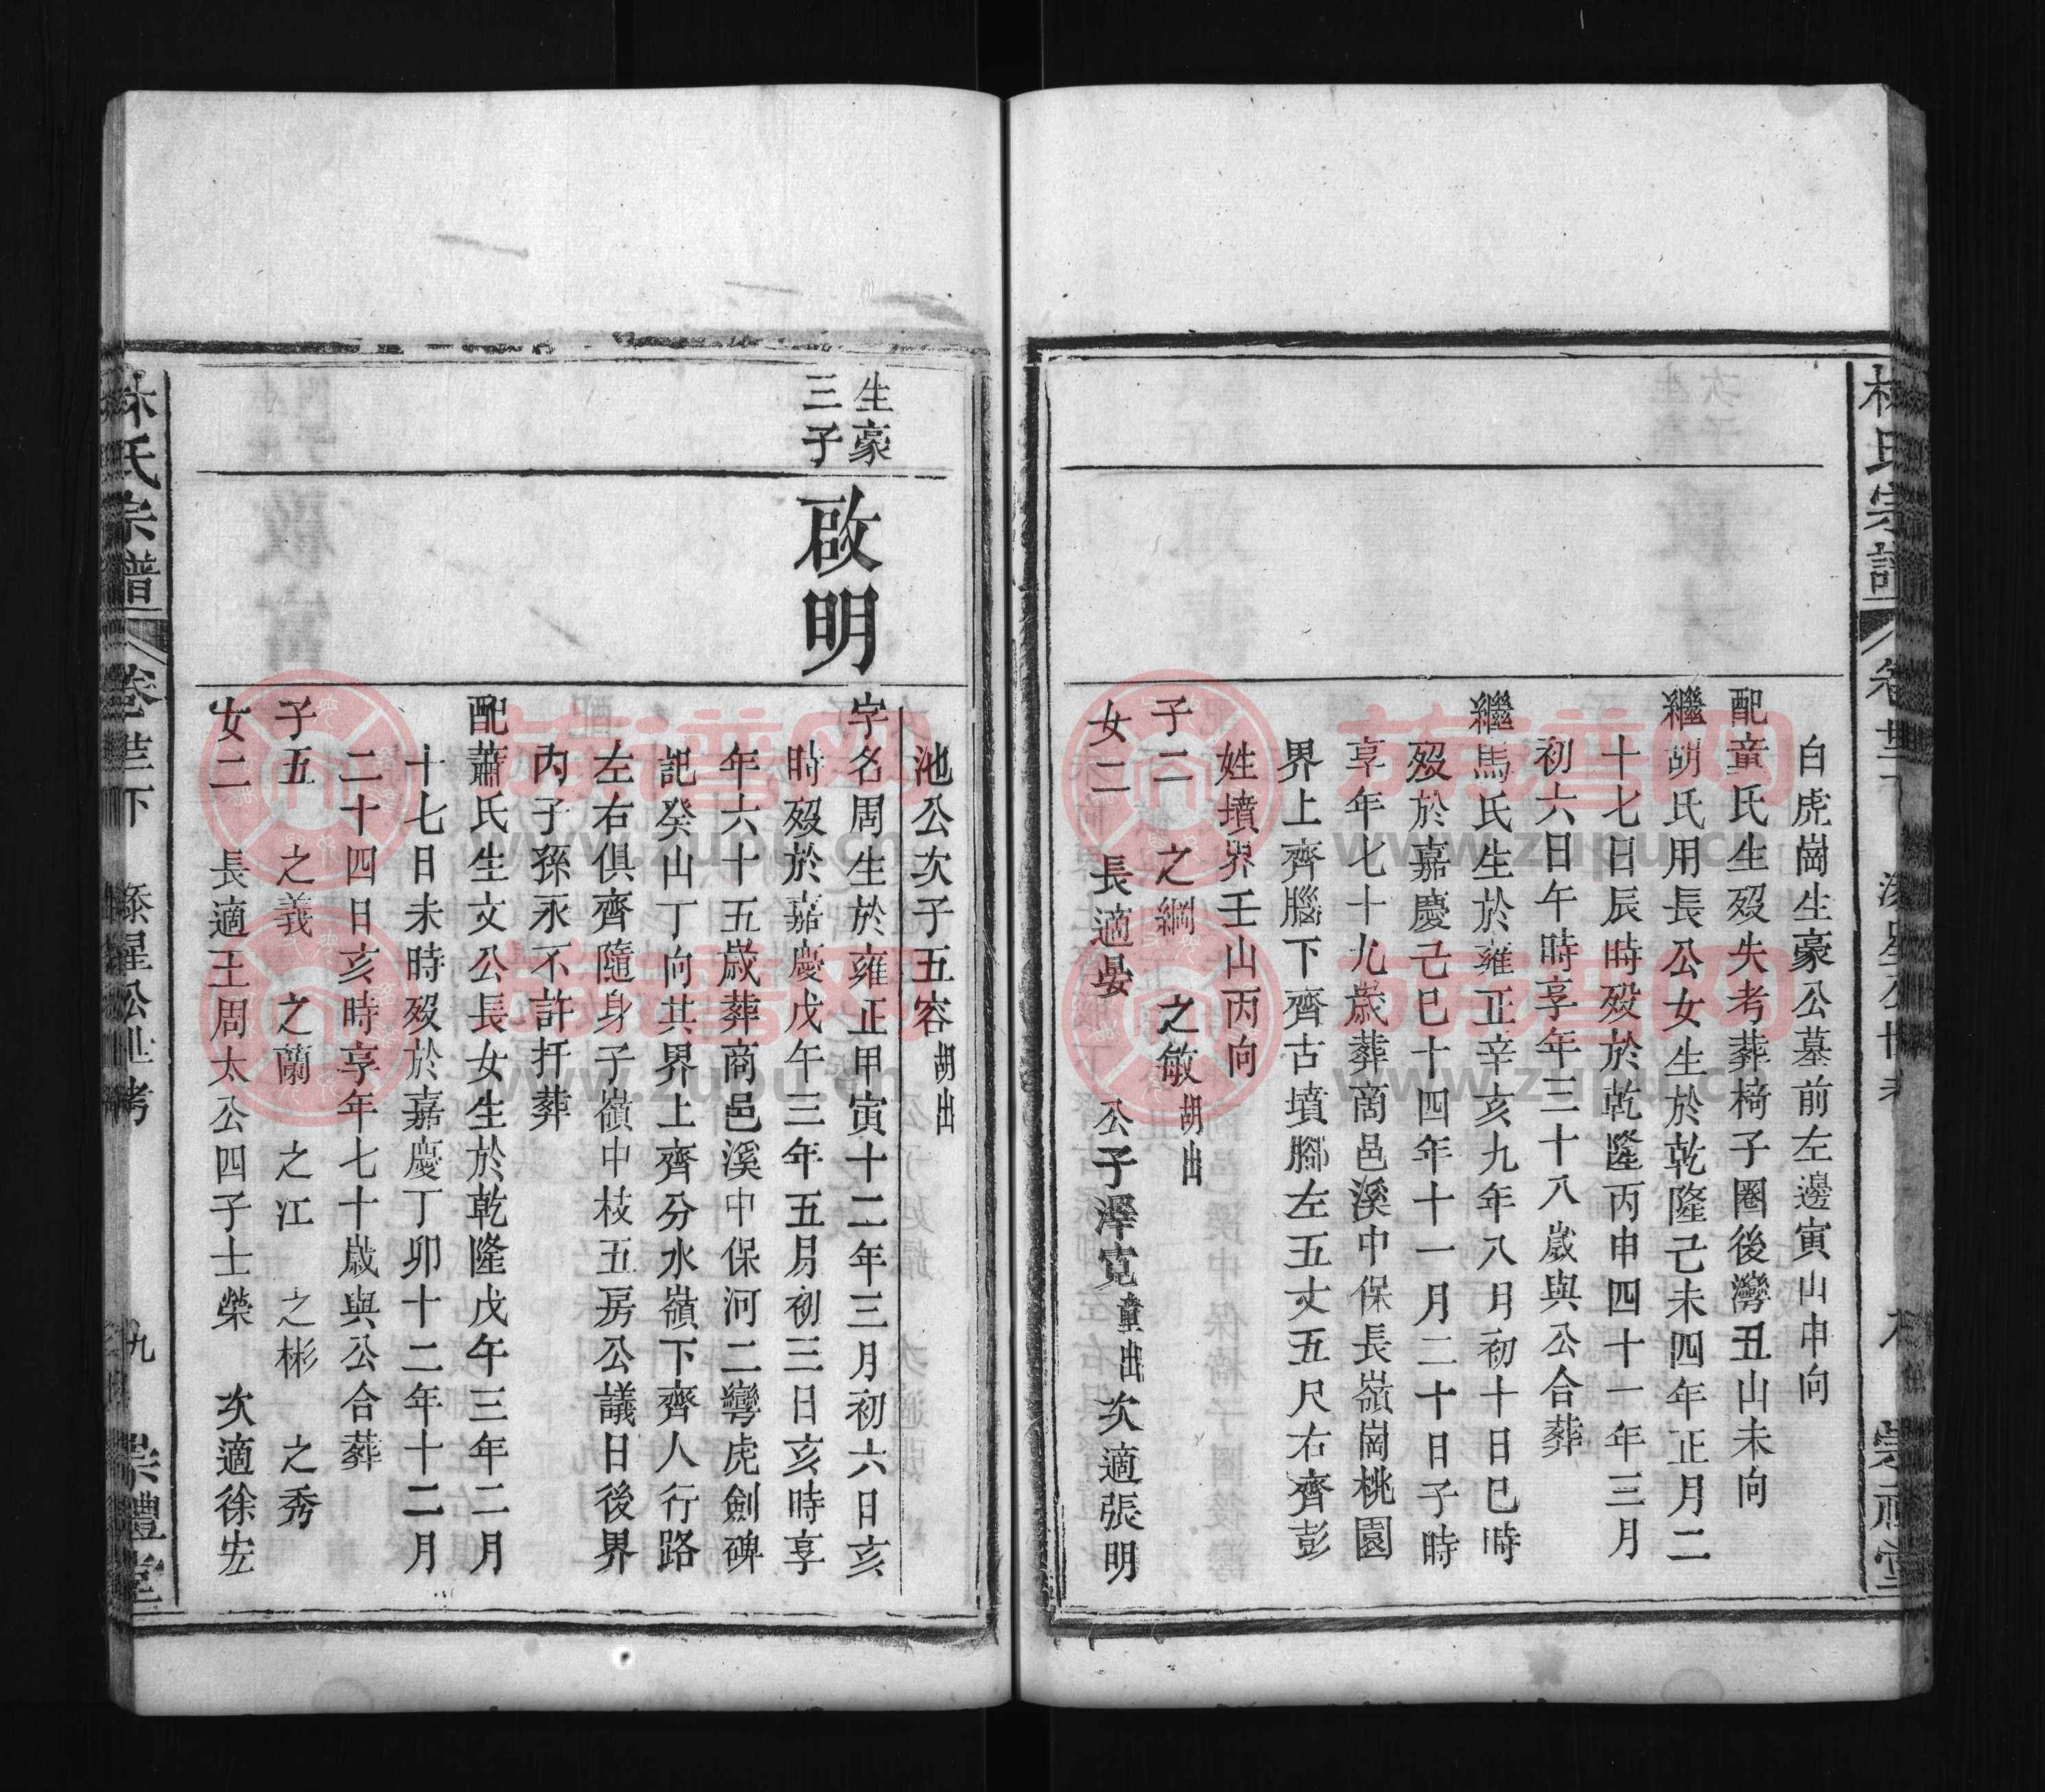 白虎崗生豪公墓前左邊寅山申向
配童氏生歿失考葬椅子圈後灣丑山未向
繼胡氏用長公女生於乾隆己未四年正月二
十七日辰時歿於乾隆丙申四十一年三月
初六日午時享年三十八歲與公合葬
繼馬氏生於雍正辛亥九年八月初十日巳時
歿於嘉慶己巳十四年十一月二十日子時
享年七十九歲葬商邑溪中保長嶺崗桃園
界上齊腦下齊古墳腳左五丈五尺右齊彭
姓墳界壬山丙向
子二 之綱 之敏胡出
女二 長適晏 公子澤寬童出次適張明
池公次子五容胡出
生豪
三子
啟明
字名周生於雍正甲寅十二年三月初六日亥
時歿於嘉慶戊午三年五月初三日亥時享
年六十五歲葬商邑溪中保河二彎虎劍碑
記癸山丁向其界上齊分水嶺下齊人行路
左右俱齊隨身子嶺中枝五房公議日後界
內子孫永不許扦葬
配蕭氏生文公長女生於乾隆戊午三年二月
十七日未時歿於嘉慶丁卯十二年十二月
二十四日亥時享年七十歲與公合葬
子五 之義 之蘭 之江 之彬 之秀
女二 長適王周太公四子士榮 次適徐宏
林氏宗譜 卷 下 九 崇禮堂
族谱网
www.zupu.cn